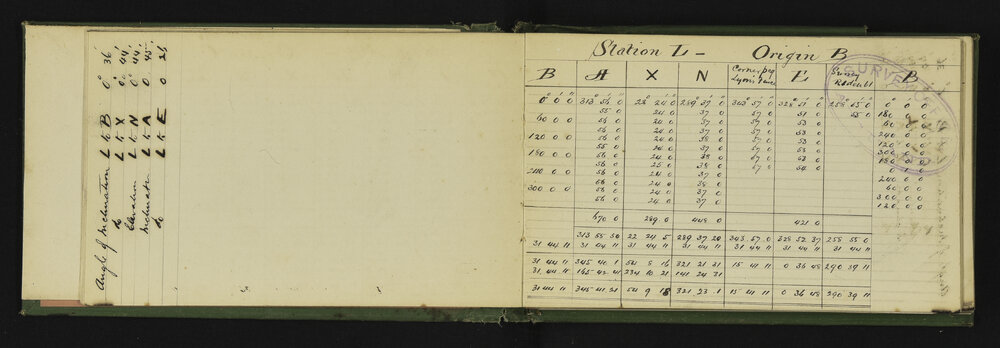 Angle of Inclination L to B 0° 36'
do L to X 0° 44'
Elevation L to N 0° 44'
Inclination L to A 0 45'
do L to E 0 26'
Station L - Origin B
B A X N Corner peg Lyons fence E Survey Redoubt B
0° 0' 0" 313 56 0 22 24 0 289 37 0 343 57 0 328 51 0 258 55 0 0 0 0
55 0 24 0 37 0 57 0 51 0 55 0 180 0 0
60 0 0 56 0 24 0 37 0 57 0 53 0 60 0 0
56 0 24 0 37 0 57 0 53 0 240 0 0
120 0 0 56 0 24 0 38 0 57 0 53 0 120 0 0
55 0 24 0 37 0 57 0 53 0 300 0 0
180 0 0 56 0 24 0 38 0 57 0 53 0 180 0 0
56 0 25 0 38 0 57 0 54 0 0 0 0
240 0 0 56 0 24 0 37 0 240 0 0
56 0 24 0 38 0 60 0 0
300 0 0 56 0 24 0 37 0 300 0 0
56 0 24 0 37 0 120 0 0
670 0 289 0 448 0 421 0
313 55 50 22 24 5 289 37 20 343 57 0 328 52 37 258 55 0
31 44 11 31 44 11 31 44 11 31 44 11 31 44 11 31 44 11 31 44 11
31 44 11 345 40 1 54 8 16 321 21 31 15 41 11 0 36 48 290 39 11
31 44 11 165 42 41 234 10 21 141 24 31
31 44 11 345 41 21 54 9 18 321 23 1 15 41 11 0 36 48 290 39 11
SURVEY